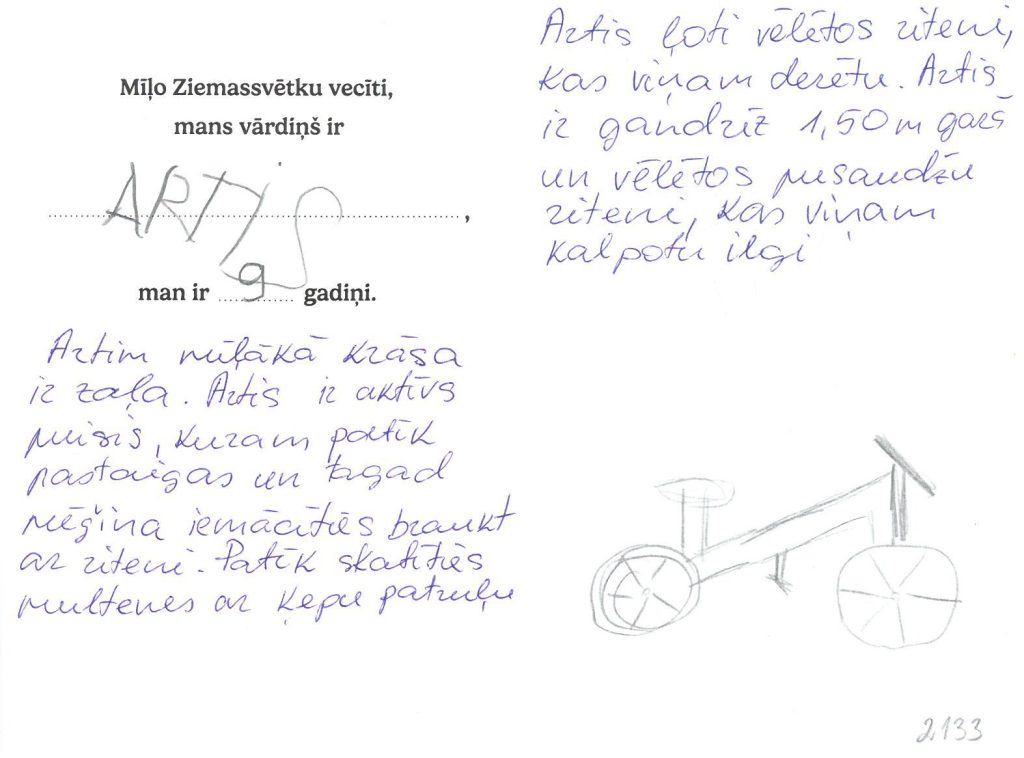 Mīļo Ziemassvētku vecīti,
mans vārdiņš ir
ARTIS,
man ir 9 gadiņi.
Artim mīļākā krāsa
ir zaļa. Artis ir aktīvs
puisis, kuram patīk
pastaigas un tagad
mēģina iemācīties braukt
ar riteni. Patīk skatīties
multenes ar Ķepu patruļu
Artis ļoti vēlētos riteni,
kas viņam derētu. Artis
ir gandrīz 1,50m garš
un vēlētos pusaudžu
riteni, kas viņam
kalpotu ilgi
2133